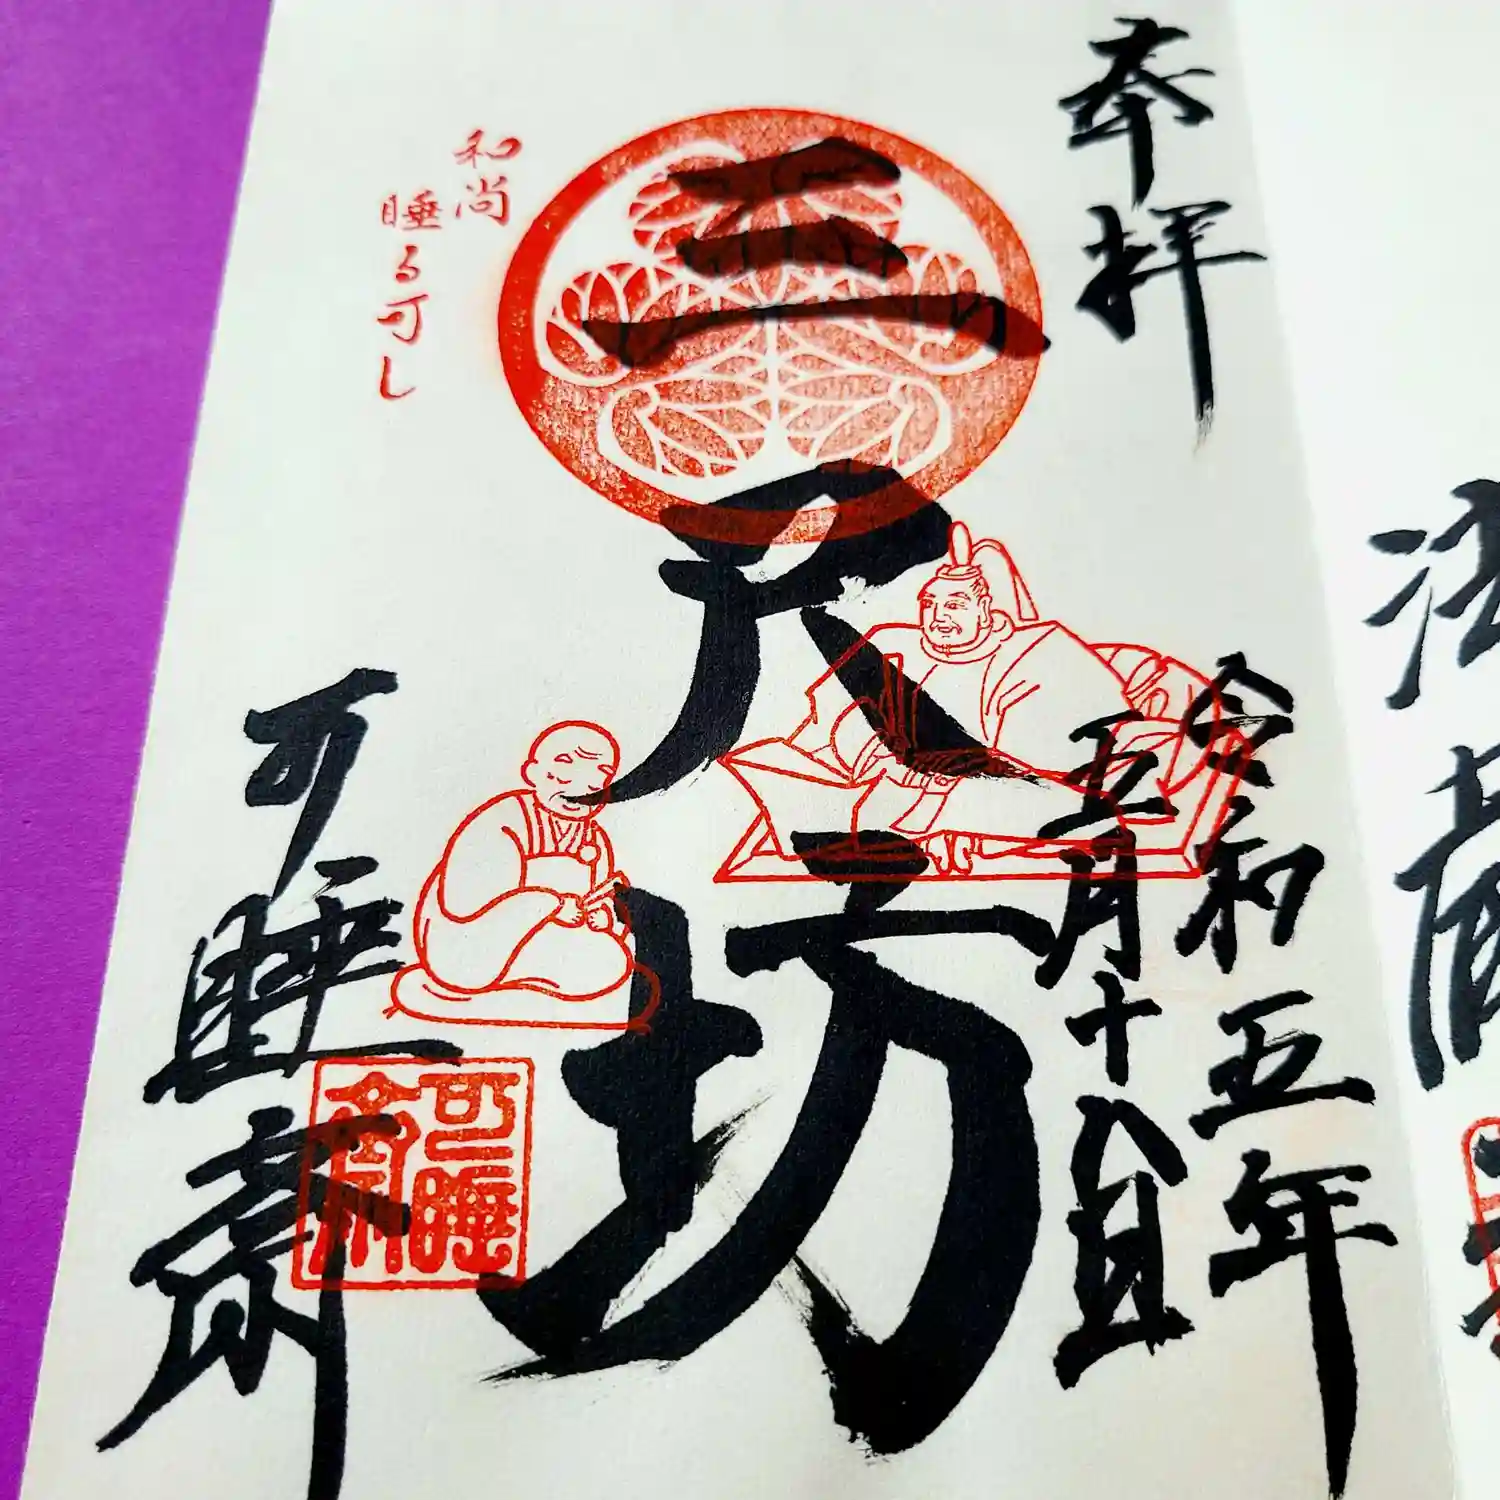 奉拝
令和五年
五月十八日
三尺坊
和尚
睡る可し
可睡齋
可睡
齋